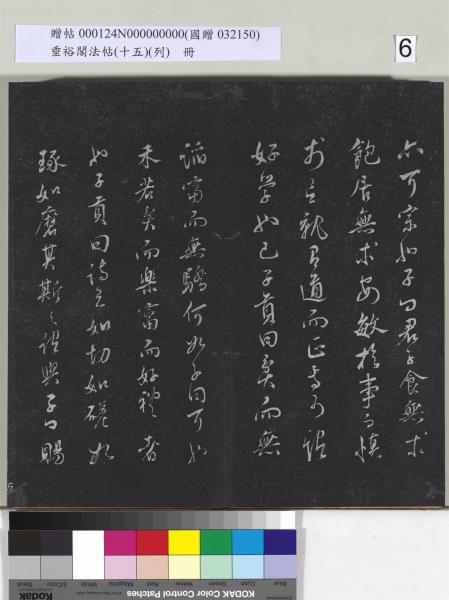 贈帖 000124N000000000(國贈 032150)
垂裕閣法帖(十五)(列) 冊
6
亦可宗也子曰君子食無求
飽居無求安敏於事而慎
於言就有道而正焉可謂
好學也已子貢曰貧而無
諂富而無驕何如子曰可也
未若貧而樂富而好禮者
也子貢曰詩云如切如磋如
琢如磨其斯之謂與子曰賜
Blue
Cyan
Green
Yellow
Red
Magenta
White
3/Color
Black
KODAK Color Control Patches